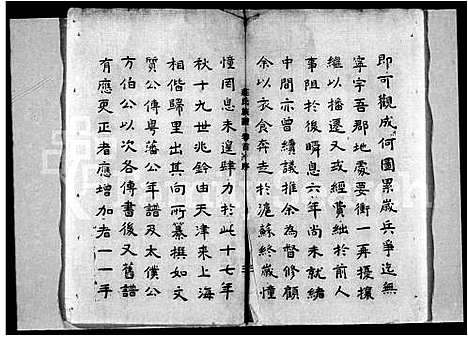 即可觀成何圖累歲兵爭迄無
寧宇吾郡地處要衝一再擾攘
繼以播遷又或經費絀於前人
事阻於後瞬息六年尚未就緒
中間亦曾續議推余為督修顧
余以衣食奔走於滬蘇終歲憧
憧罔息未遑肆力於此十七年
秋十九世兆鈐由天津來上海
相偕歸里出其向所纂撰如文
質公傳粵藩公年譜及太僕公
方伯公以次各傳書後又舊譜
有應更正者應增加者一一手